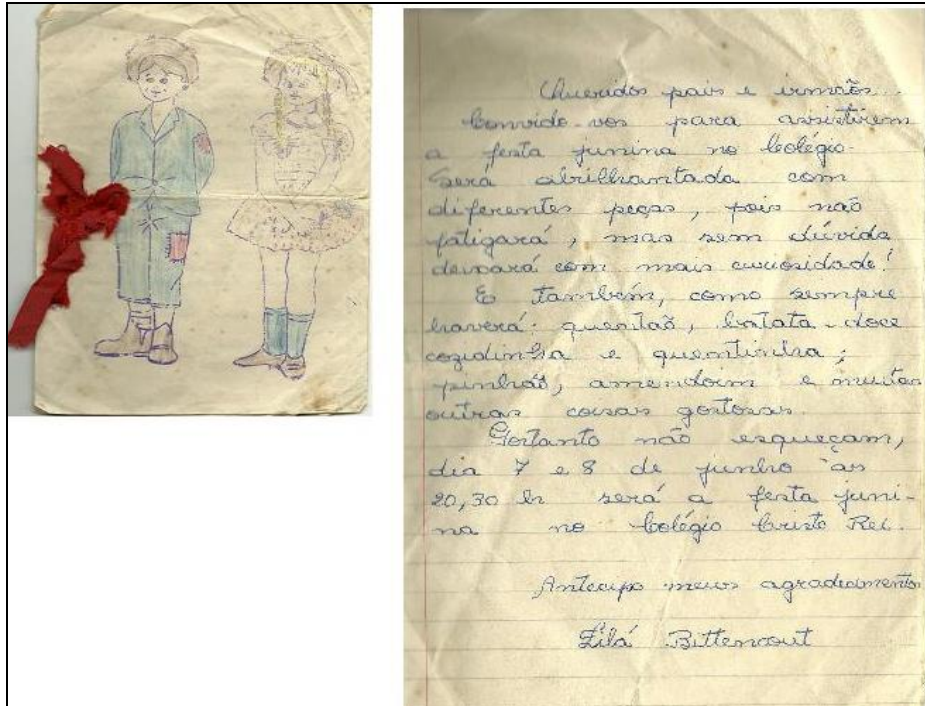 Queridos pais e irmãos...
Convido-vos para assistirem
a festa junina no Colégio.
Será abrilhantada com
diferentes peças, pois não
fatigará, mas sem dúvida
deixará com mais curiosidade!
E também, como sempre
haverá: quentão, batata-doce
cozidinha e quentinha;
pinhão, amendoim e muitas
outras coisas gostosas.
Portanto não esqueçam,
dia 7 e 8 de junho às
20,30 hr será a festa juni-
na no Colégio Cristo Rei.
Antecipo meus agradecimentos
Zilá Bittencout